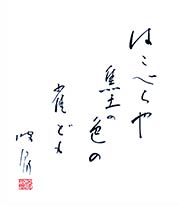 はこべらや
焦土の色の
雀ども
波郷